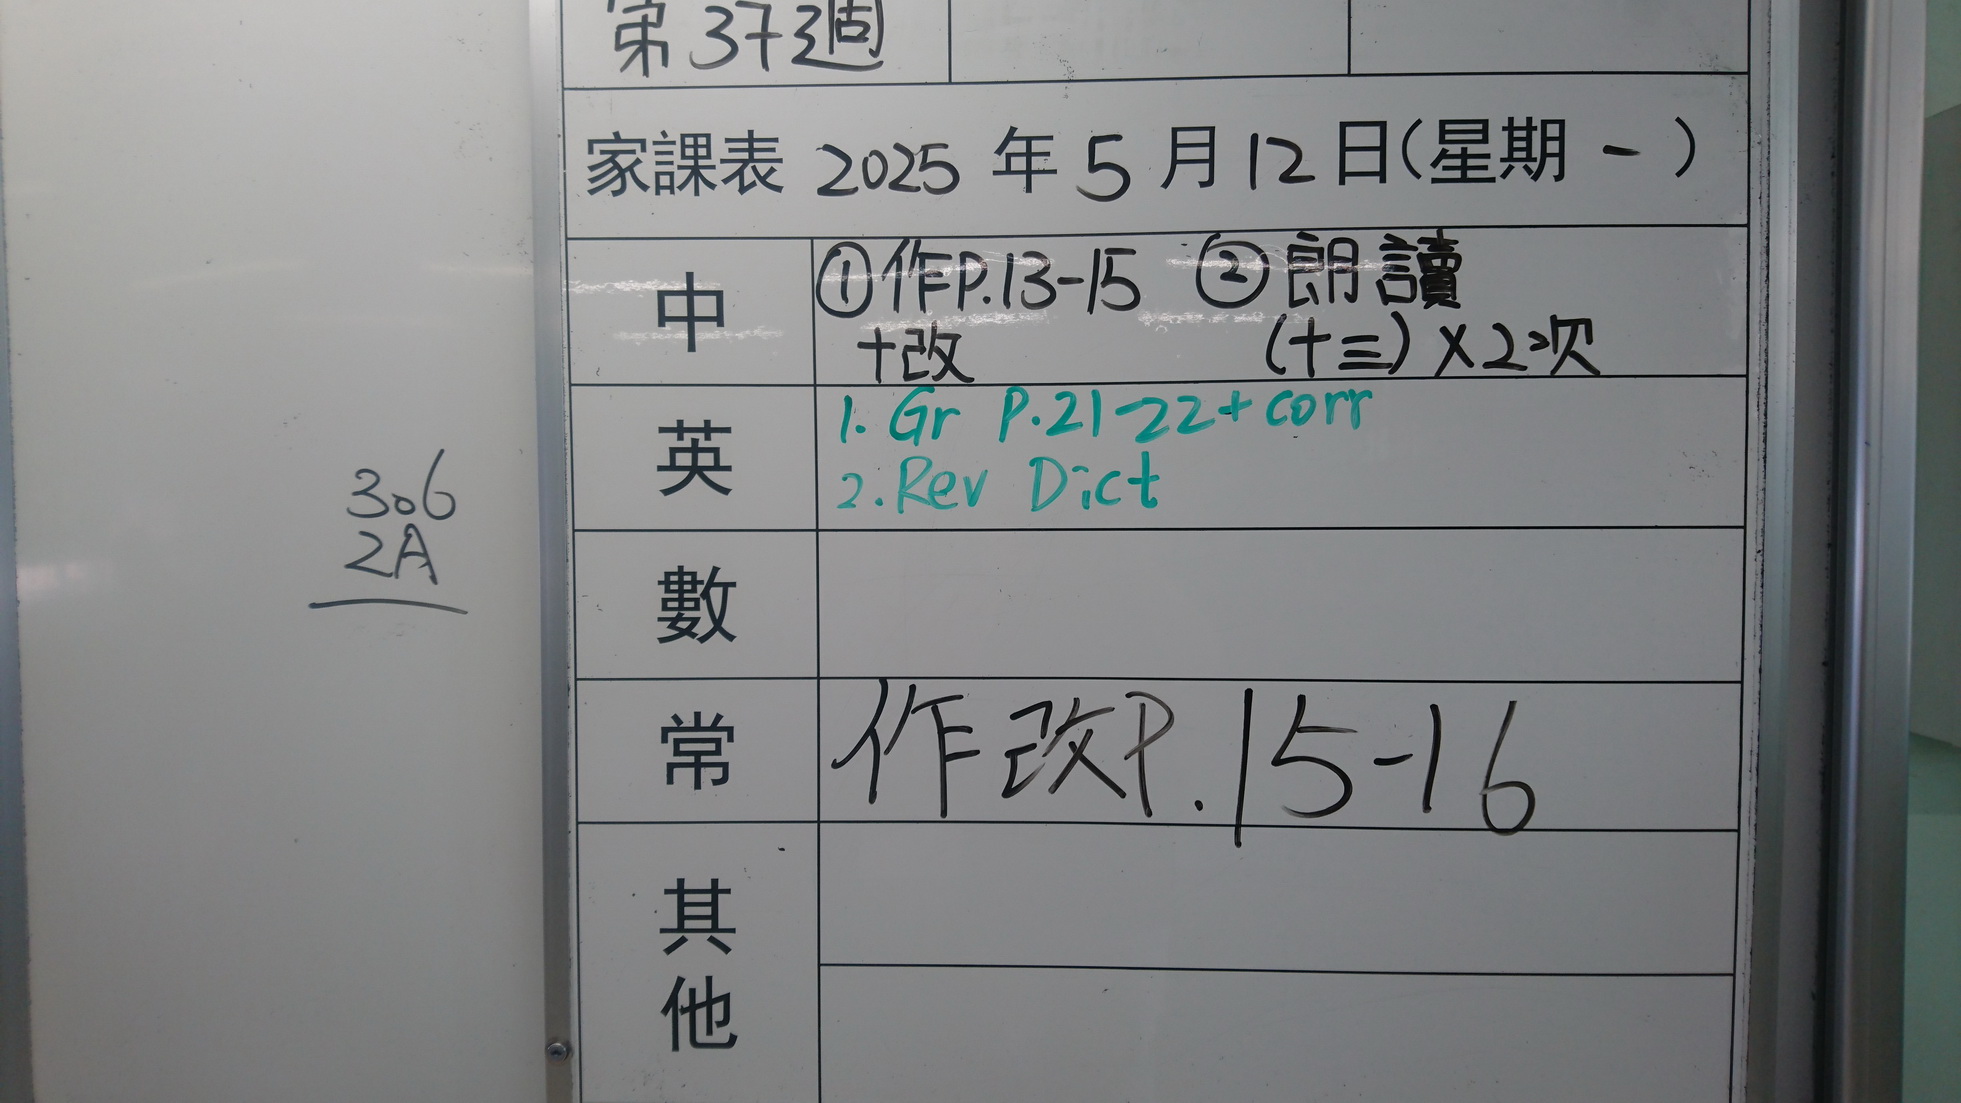 第37週
家課表 2025 年 5 月 12 日(星期 一 )
中 ①作P.13-15 ②朗讀
+改 (十三)×2次
英 1. Gr P.21-22+corr
2. Rev Dict
數
常 作改P.15-16
其他
306
2A